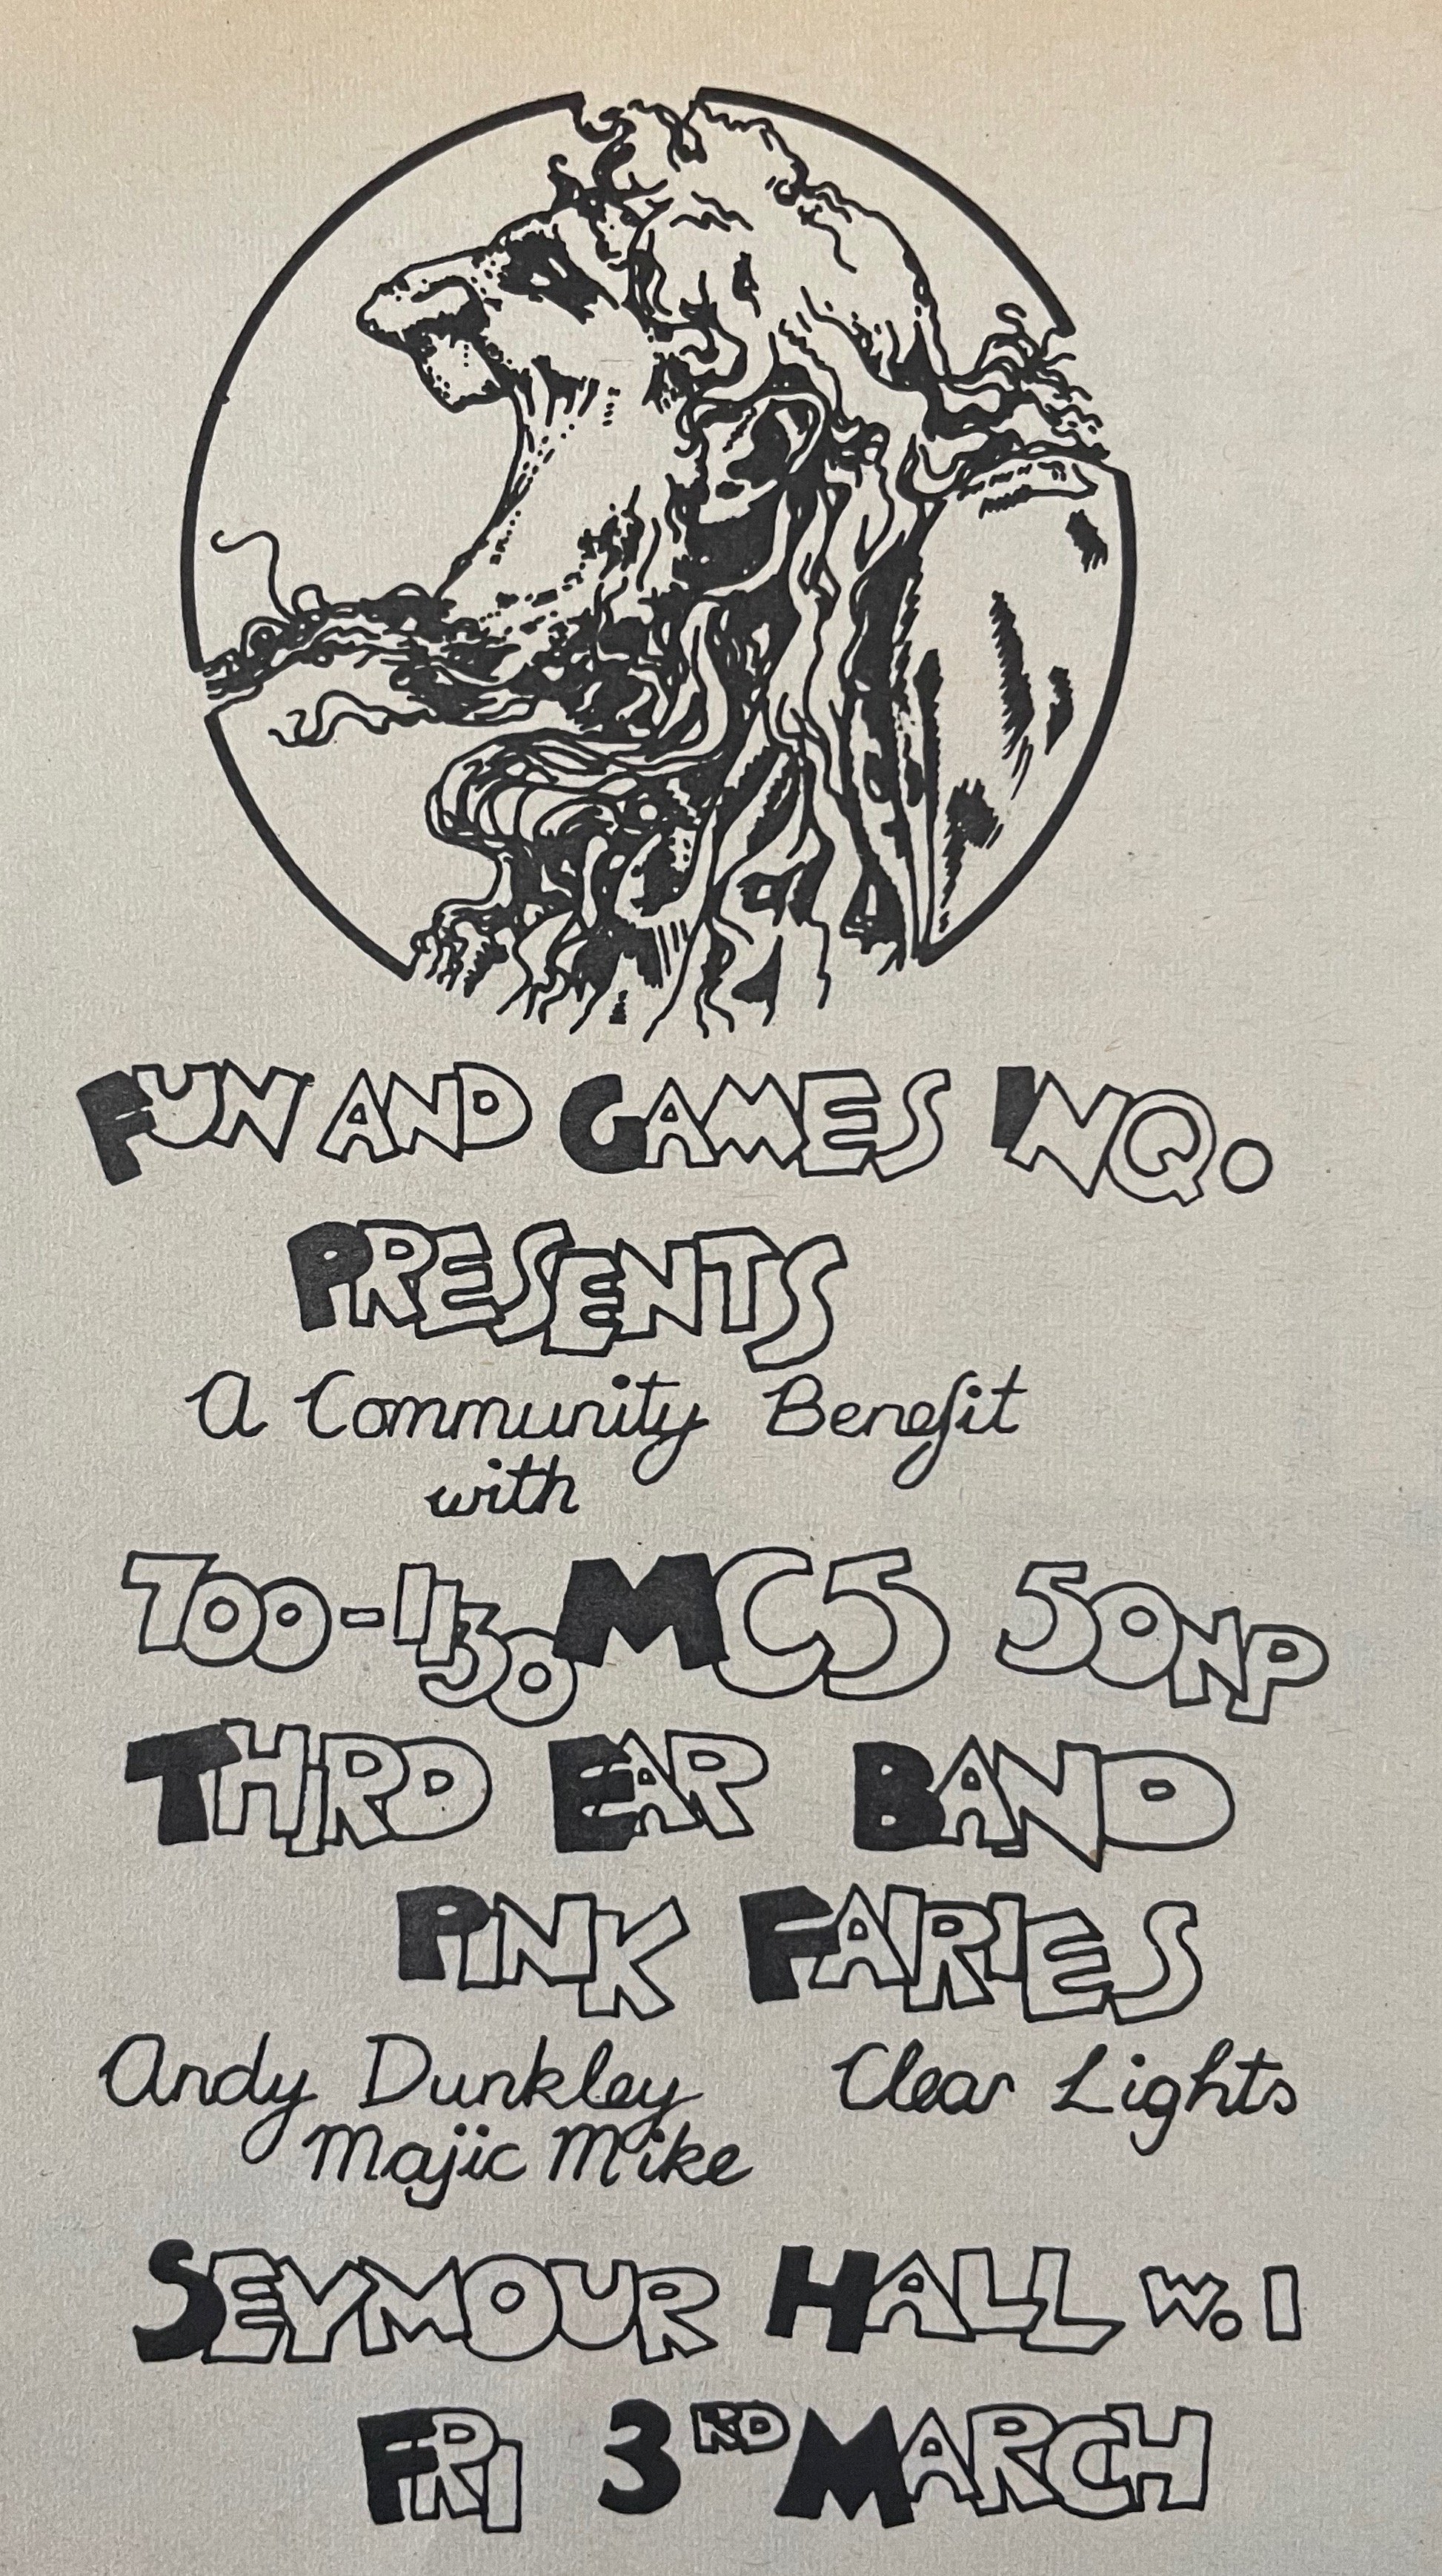 FUN AND GAMES INQ.
PRESENTS
A Community Benefit
with
700-1130 MC5 50NP
THIRD EAR BAND
PINK FAIRIES
Andy Dunkley Clear Lights
Majic Mike
SEYMOUR HALL W.1
FRI 3RD MARCH